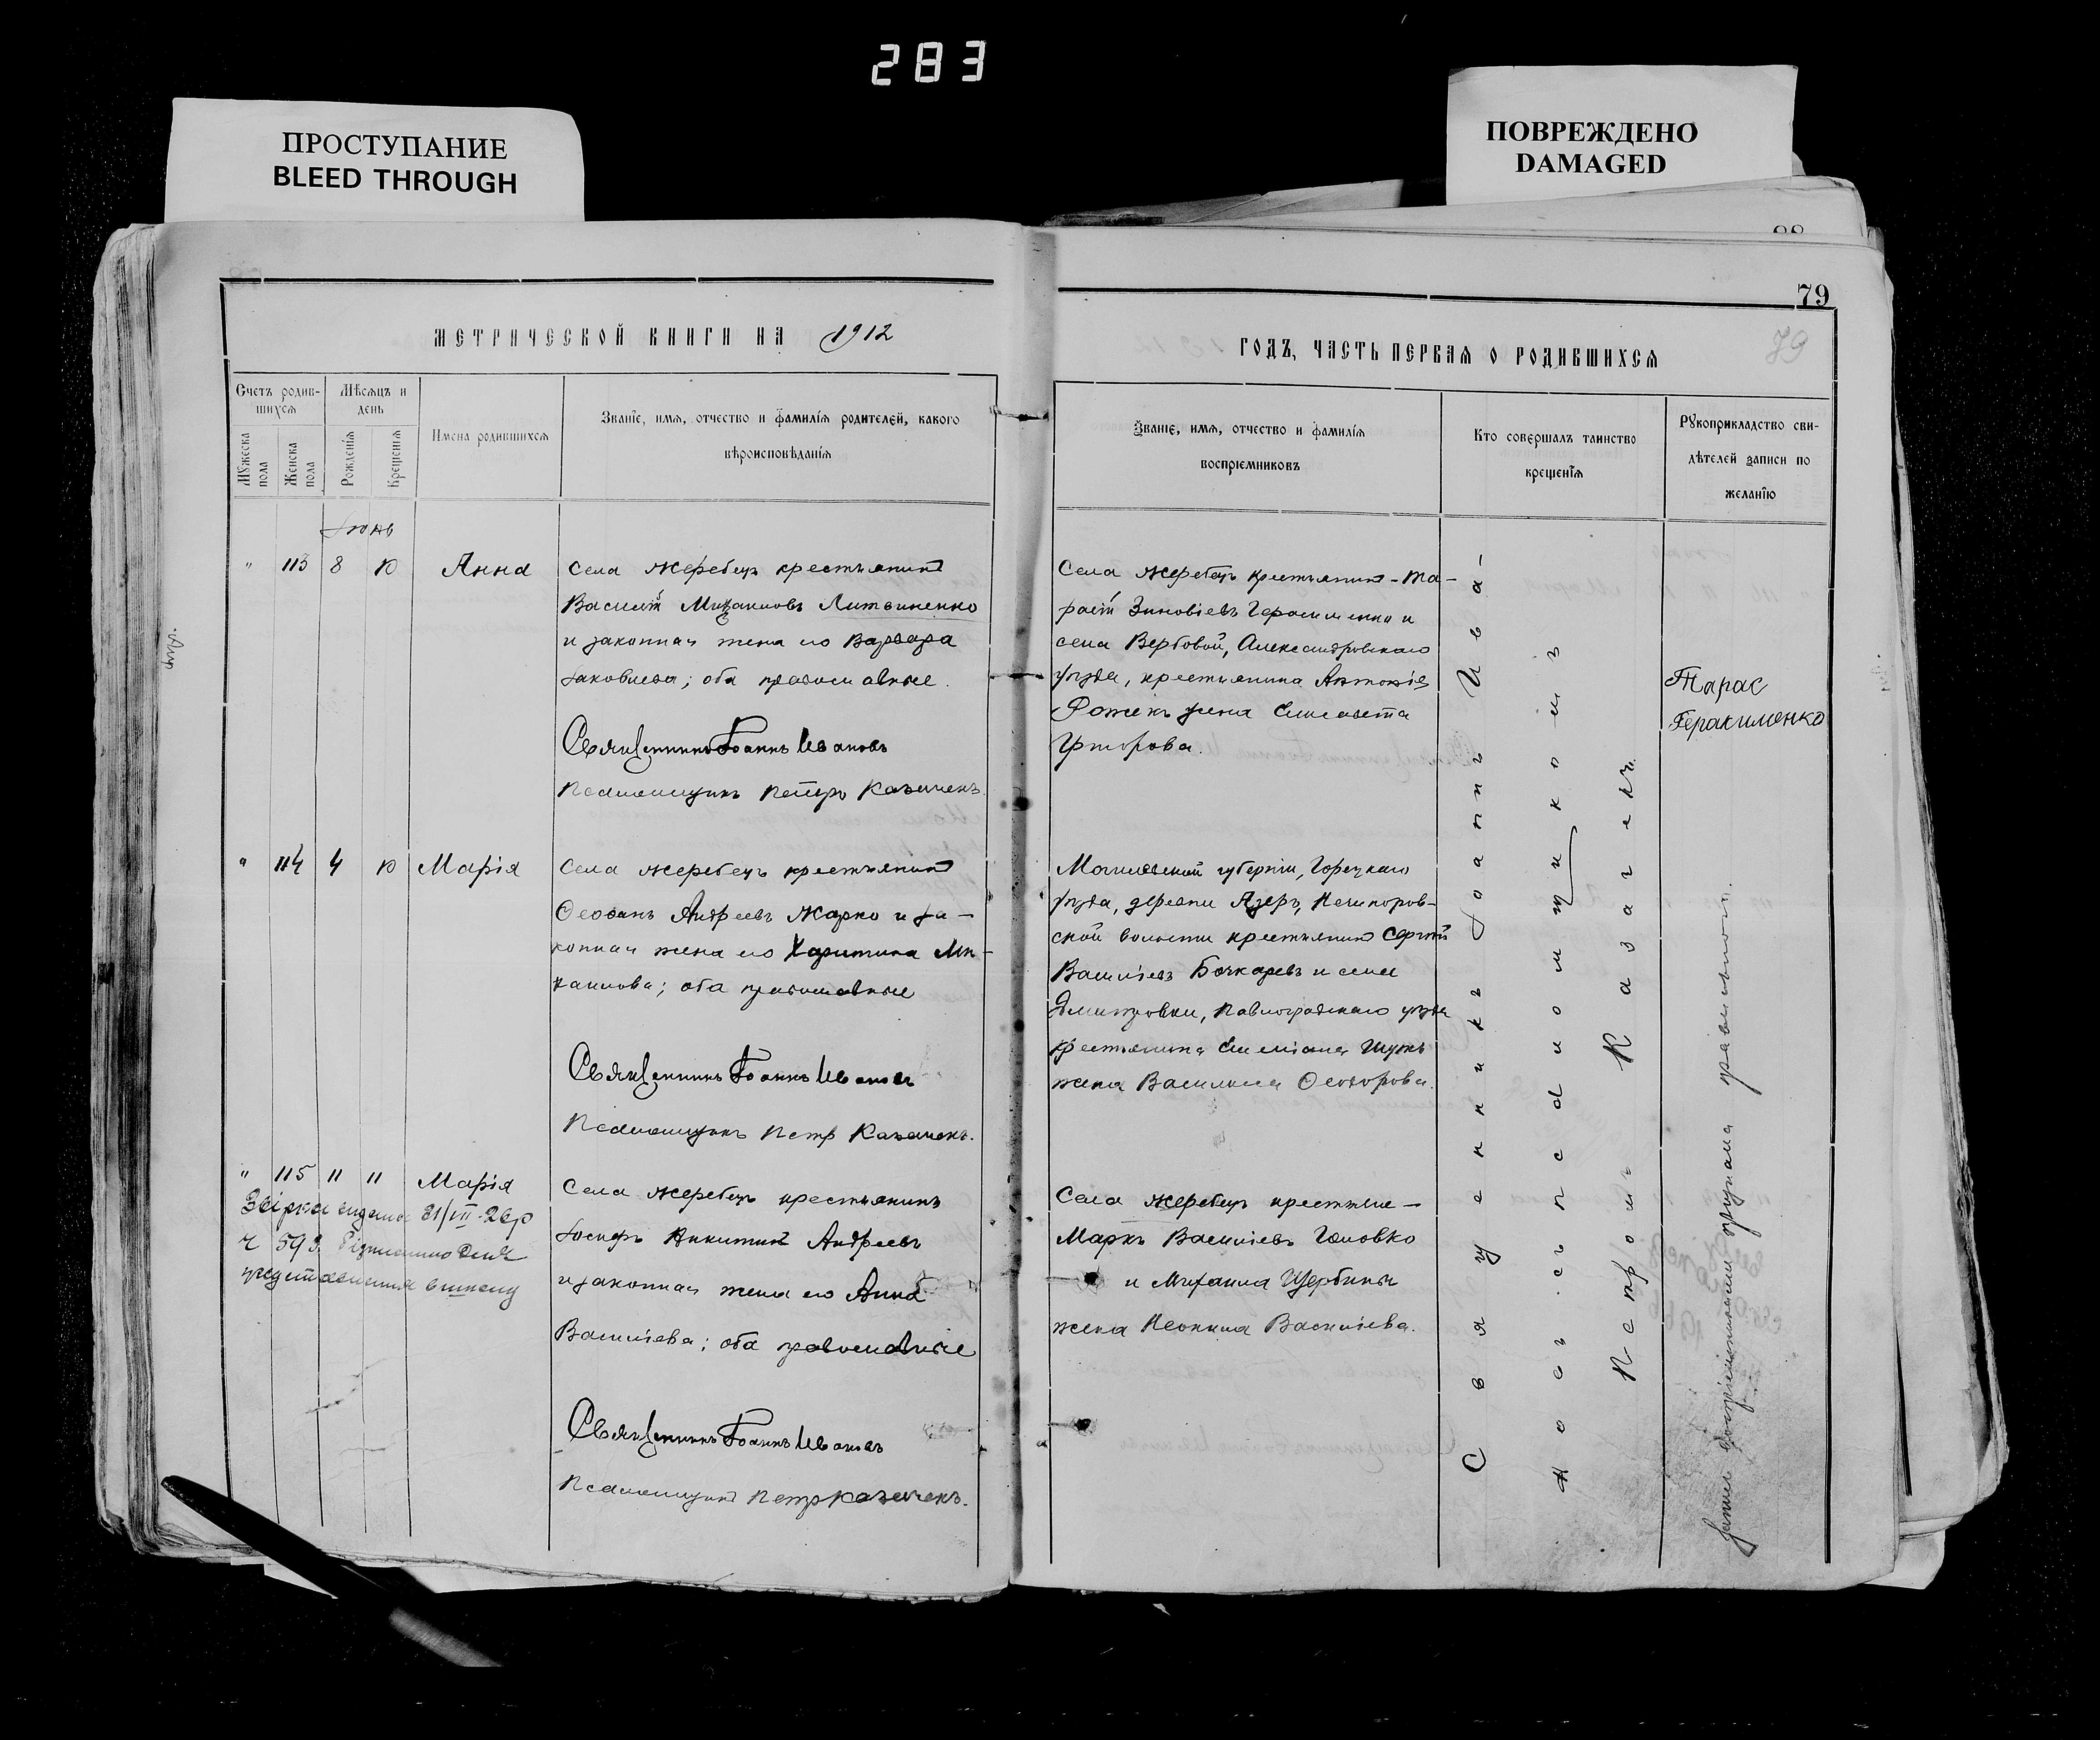 283
ПРОСТУПАНИЕ
BLEED THROUGH
ПОВРЕЖДЕНО
DAMAGED
МЕТРИЧЕСКОЙ КНИГИ НА 1912
Счетъ родив-
шихся
Мѣсяцъ и
день
Мужеска
пола
Женска
пола
Рожденія
Крещенія
Имена родившихся
Званіе, имя, отчество и фамилія родителей, какого
вѣроисповѣданія
Іюнь
" 113 8 10 Анна
Села Жеребецъ крестьянинъ
Василій Михаиловъ Литвиненко
и законная жена его Варвара
Іаковлева; оба православные.
Священникъ Іоаннъ Ивановъ
Псаломщикъ Петръ Казачекъ.
" 114 4 10 Марія
Села Жеребецъ крестьянинъ
Ѳеофанъ Андреевъ Жарко и за-
конная жена его Харитина Ми-
хаилова; оба православные
Священникъ Іоаннъ Ивановъ
Псаломщикъ Петръ Казачекъ.
" 115 11 11 Марія
Села Жеребецъ крестьянинъ
Іосифъ Никитинъ Андреевъ
и законная жена его Анна
Васильева; оба православные
Священникъ Іоаннъ Ивановъ
Псаломщикъ Петръ Казачекъ.
видана 31/VII-26р
ч 593.
79
79
ГОДЪ, ЧАСТЬ ПЕРВАЯ О РОДИВШИХСЯ
Званіе, имя, отчество и фамилія
воспріемниковъ
Кто совершалъ таинство
крещенія
Рукоприкладство сви-
дѣтелей записи по
желанію
Села Жеребецъ крестьянинъ Та-
расій Зиновіевъ Герасименко и
села Вербовой, Александровскаго
уѣзда, крестьянина Антонія
жена Елисавета
Села Жеребецъ крестьяне
Могилевской губерніи, Горецкаго
уѣзда, деревни
волости крестьянинъ Сергій
Васильевъ Бочкаревъ и села
Дмитровки, Павлоградскаго уѣзда
крестьянина
жена Василиса Ѳеодорова.
Маркъ Васильевъ Головко
и Михаила Щербины
жена Васильева.
Священникъ Іоаннъ Ива-
новъ съ псаломщикомъ
Петромъ Казачекъ.
Тарас
Герасименко